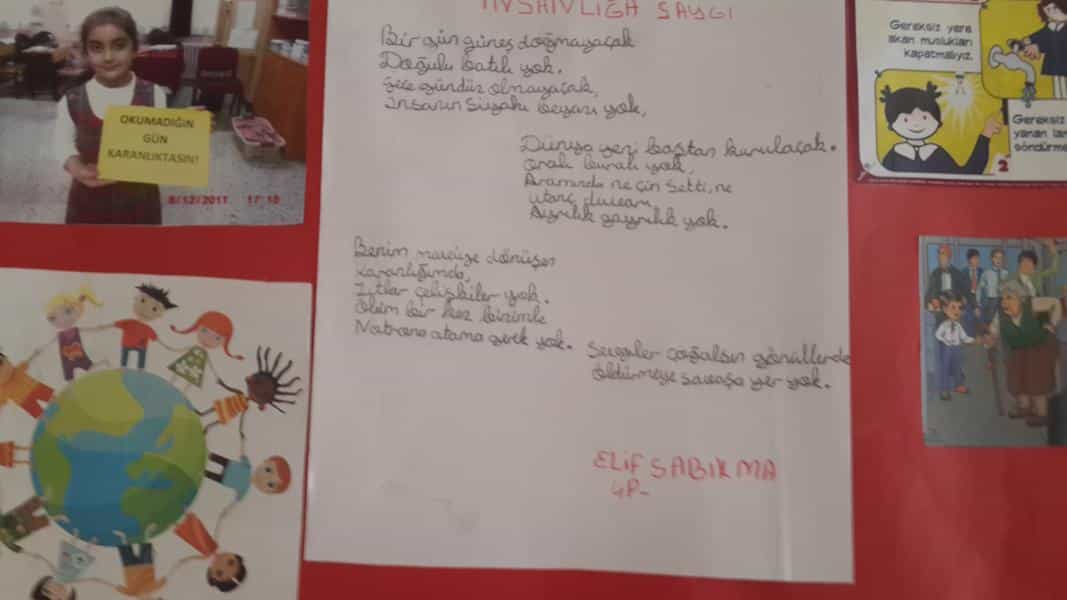 İNSANLIĞA SAYGI
Bir gün güneş doğmayaçak
Doğulu batılı yok.
Geçe gündüz olmayaçak,
İnsanın siyahı beyazı yok,
Dünya yeni baştan kurulaçak.
oralı buralı yok,
Aramızda ne çin setti, ne
utanç duvarı,
Ayrılık gayrılık yok.
Benim maviye dönüşen
karanlığımda,
Zıtlar çelişkiler yok.
ölüm bir kez bizimle
atama gerek yok.
Sevgiler çoğalsın gönüllerde
öldürmeye savaşa yer yok.
ELİF SABIKMA
OKUMADIĞIN
GÜN
KARANLIKTASIN!
8/12/2011 17:10
Gereksiz yere
akan muslukları
kapatmalıyız.
Gereksiz
yanan
söndürme
2